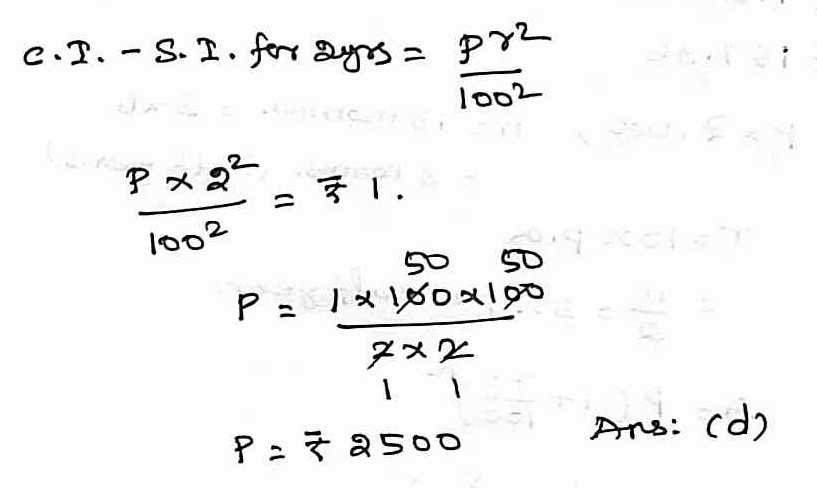 C.I. - S.I. for 2yrs = Pr²/100²
P x 2²/100² = ₹ 1.
50 50
P = 1 x 100 x 100/2 x 2
1 1
P = ₹ 2500 Ans: (d)